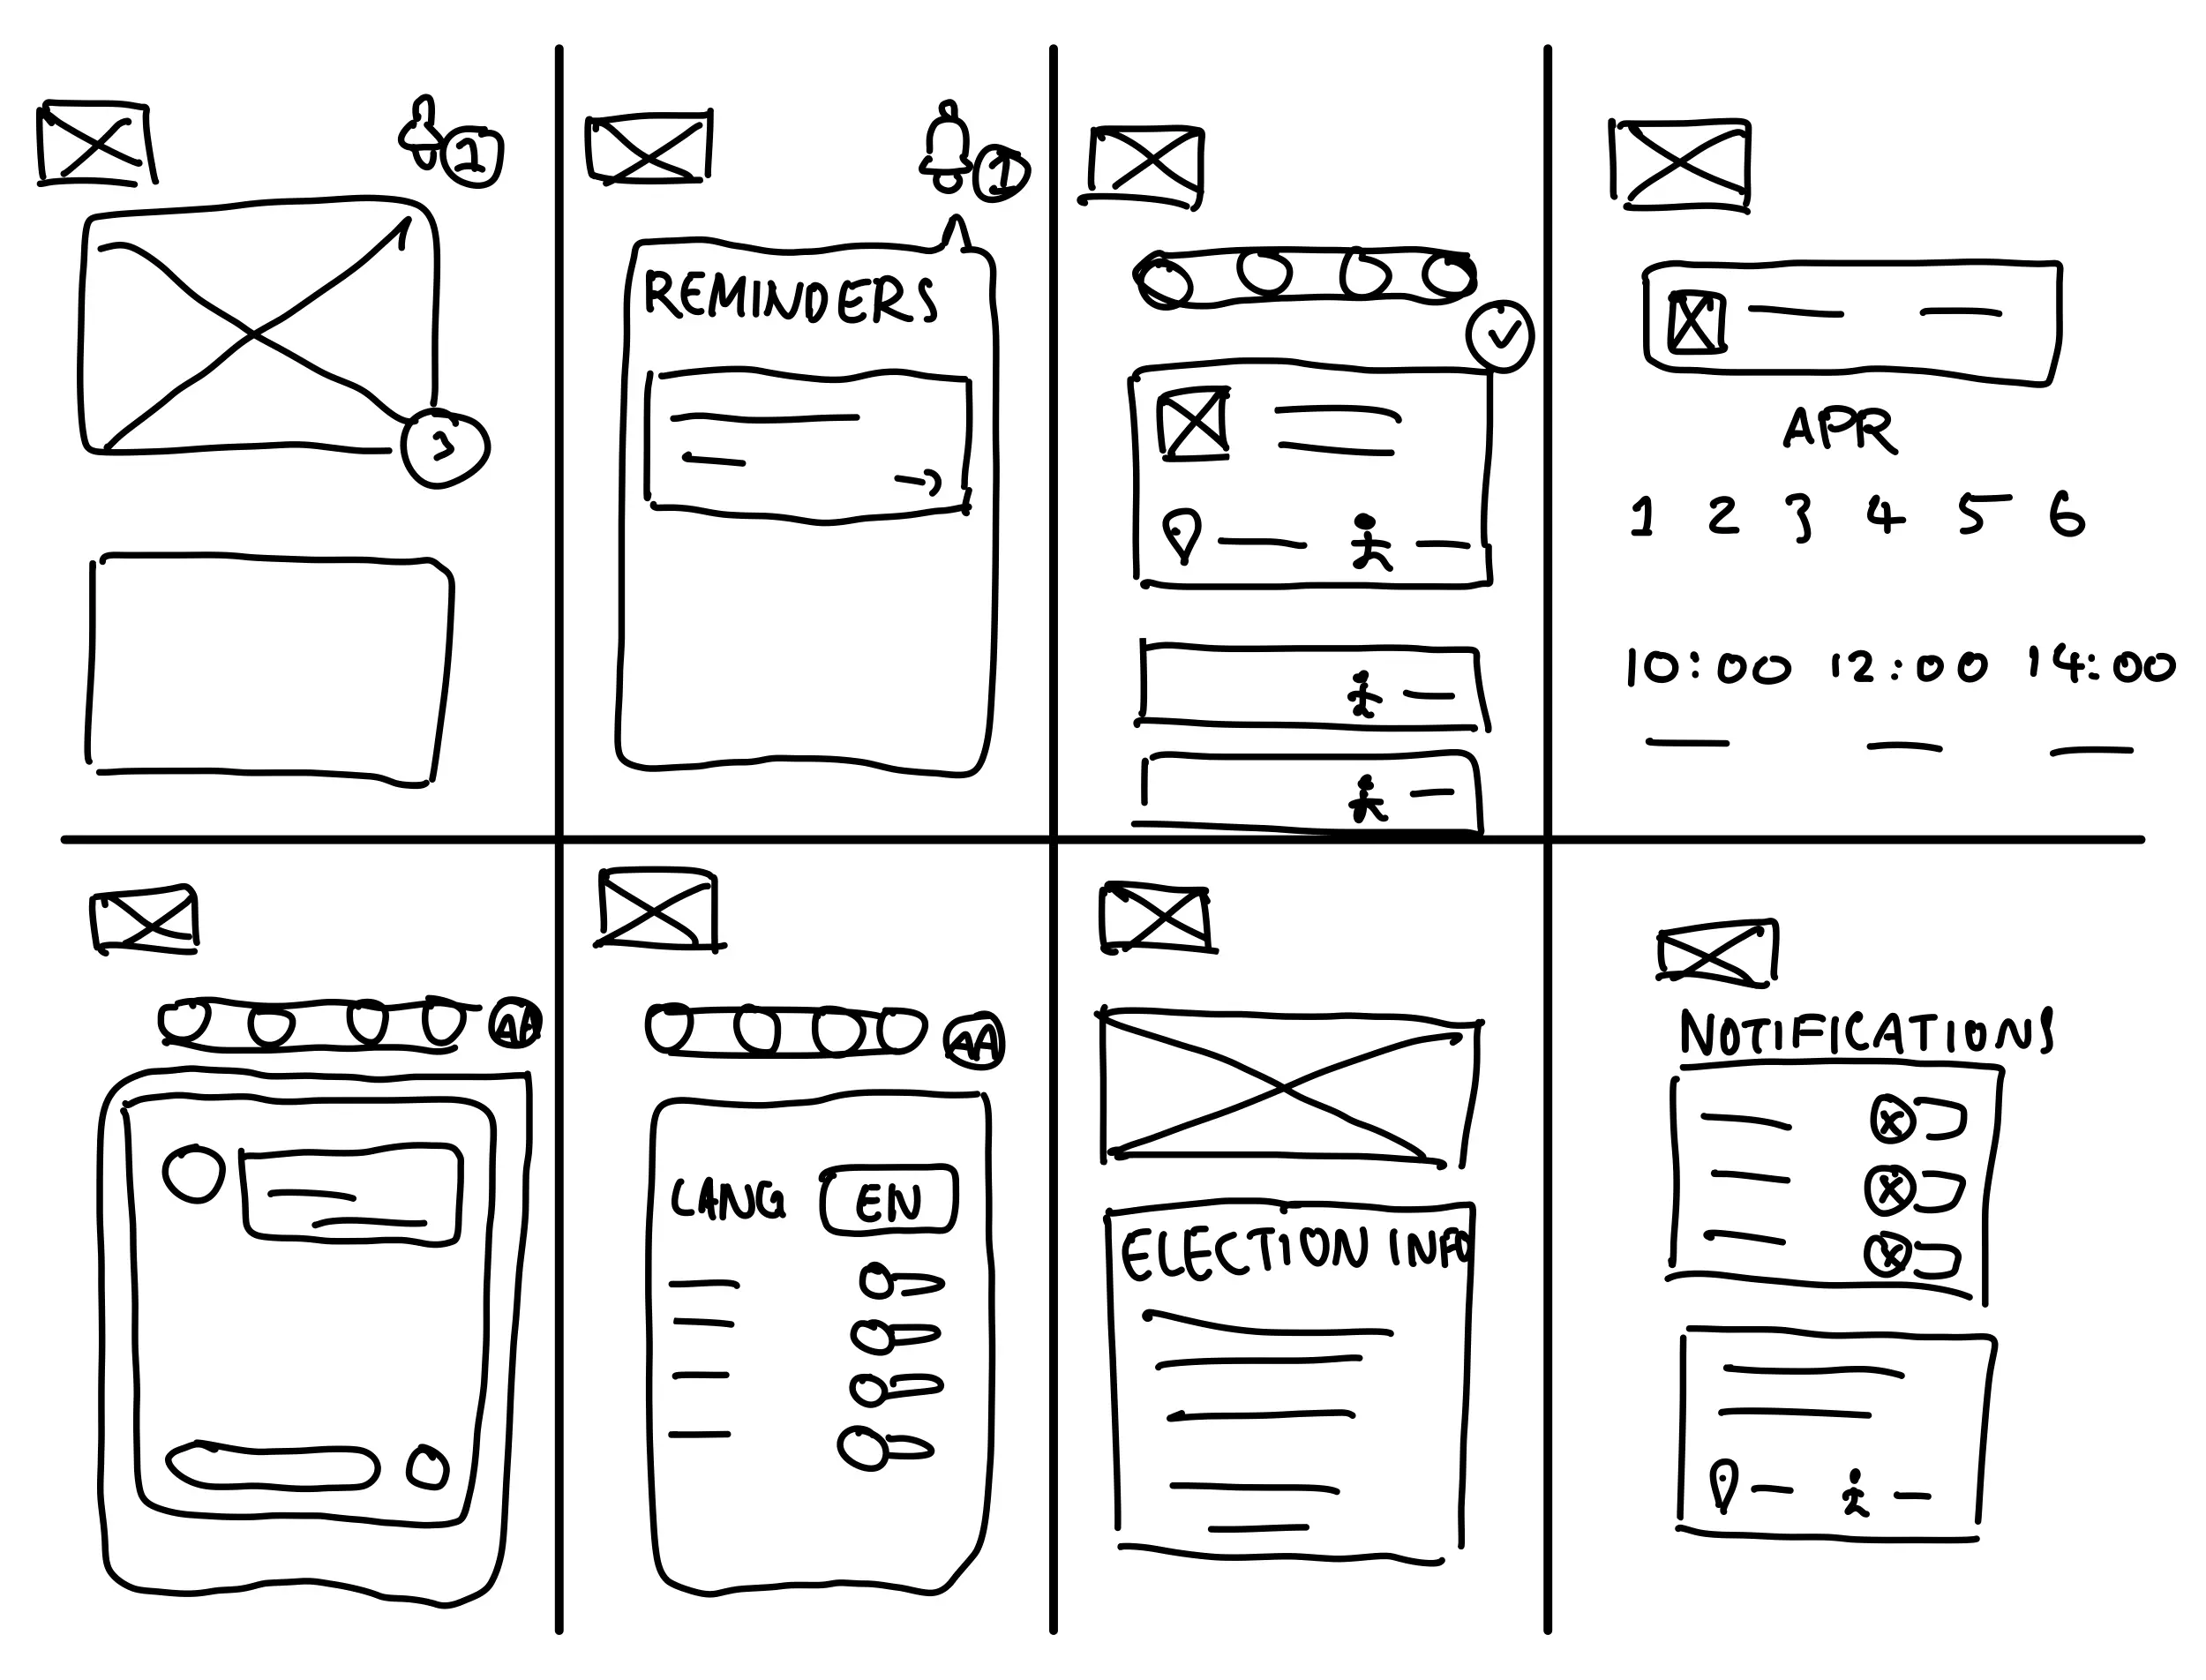 1
3
1
REMINDERS
APR
1 2 3 4 5 6
10:00 12:00 14:00
AA
AA
LANG EN
ELECTION INFO
NOTIFICATIONS